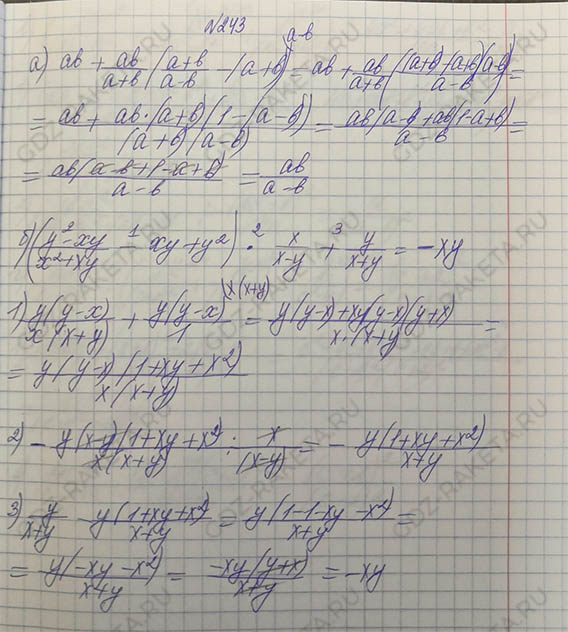 №243
а) ab + ab/(a+b) ((a+b)/(a-b) - (a+b)) = ab + ab/(a+b) (((a+b)-(a+b)(a-b))/(a-b)) =
= ab + (ab·(a+b)(1-(a-b)))/((a+b)(a-b)) = (ab(a-b)+ab(1-a+b))/(a-b) =
= ab(a-b+1-a+b)/(a-b) = ab/(a-b)
б) ((y²-xy)/(x²+xy) - xy+y²) · x/(x-y) + y/(x+y) = -xy
1) y(y-x)/(x(x+y)) + y(y-x)/1 \x(x+y) = (y(y-x)+xy(y-x)(y+x))/(x·(x+y)) =
= y(y-x)(1+xy+x²)/(x(x+y))
2) - y(x-y)(1+xy+x²)/(x(x+y)) · x/(x-y) = - y(1+xy+x²)/(x+y)
3) y/(x+y) - y(1+xy+x²)/(x+y) = y(1-1-xy-x²)/(x+y) =
= y(-xy-x²)/(x+y) = -xy(y+x)/(x+y) = -xy
GDZ-RAKETA.RU